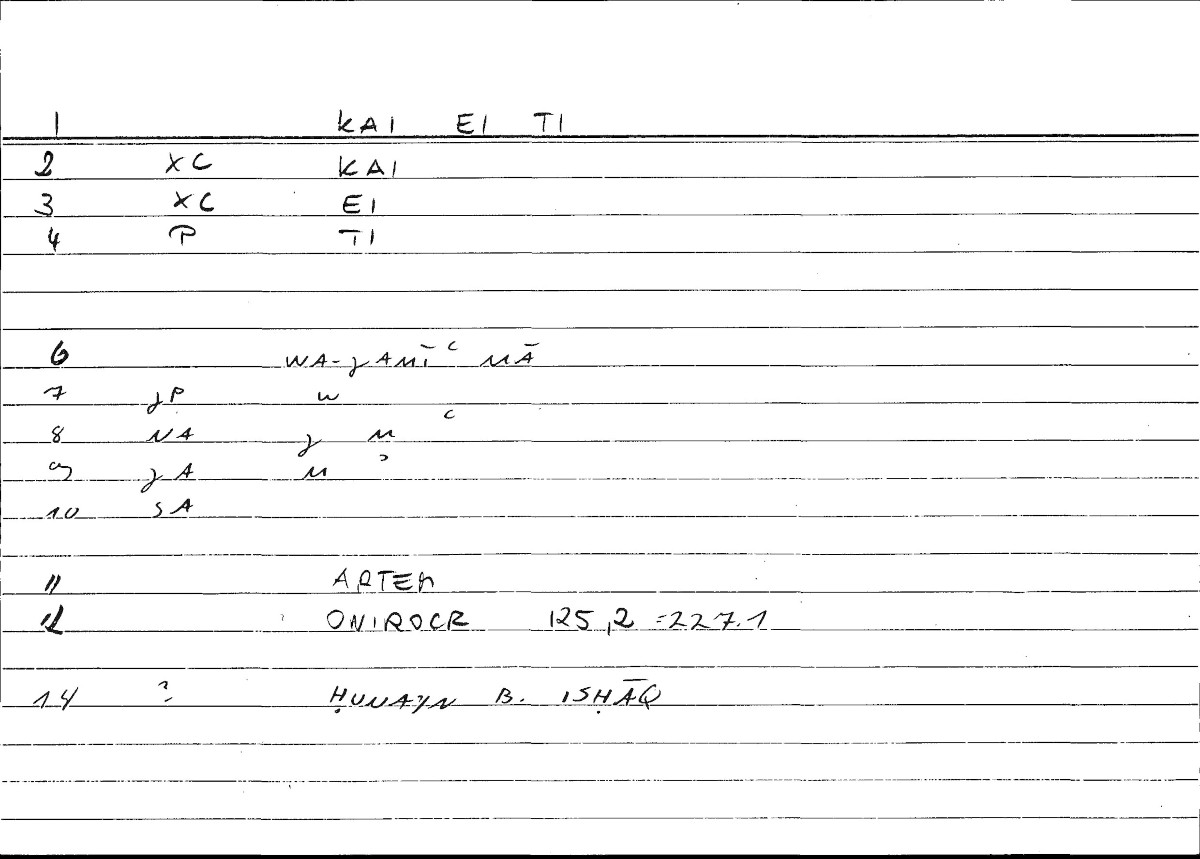 1 KAI EI TI
2 XC KAI
3 XC EI
4 P TI
6 WA-JAMĪʿ MĀ
7 JP W
8 NA J M ʿ
9 JA M ʾ
10 SA
11 ARTEM
12 ONIROCR 125,2 =227.1
14 ? ḤUNAYN B. ISḤĀQ